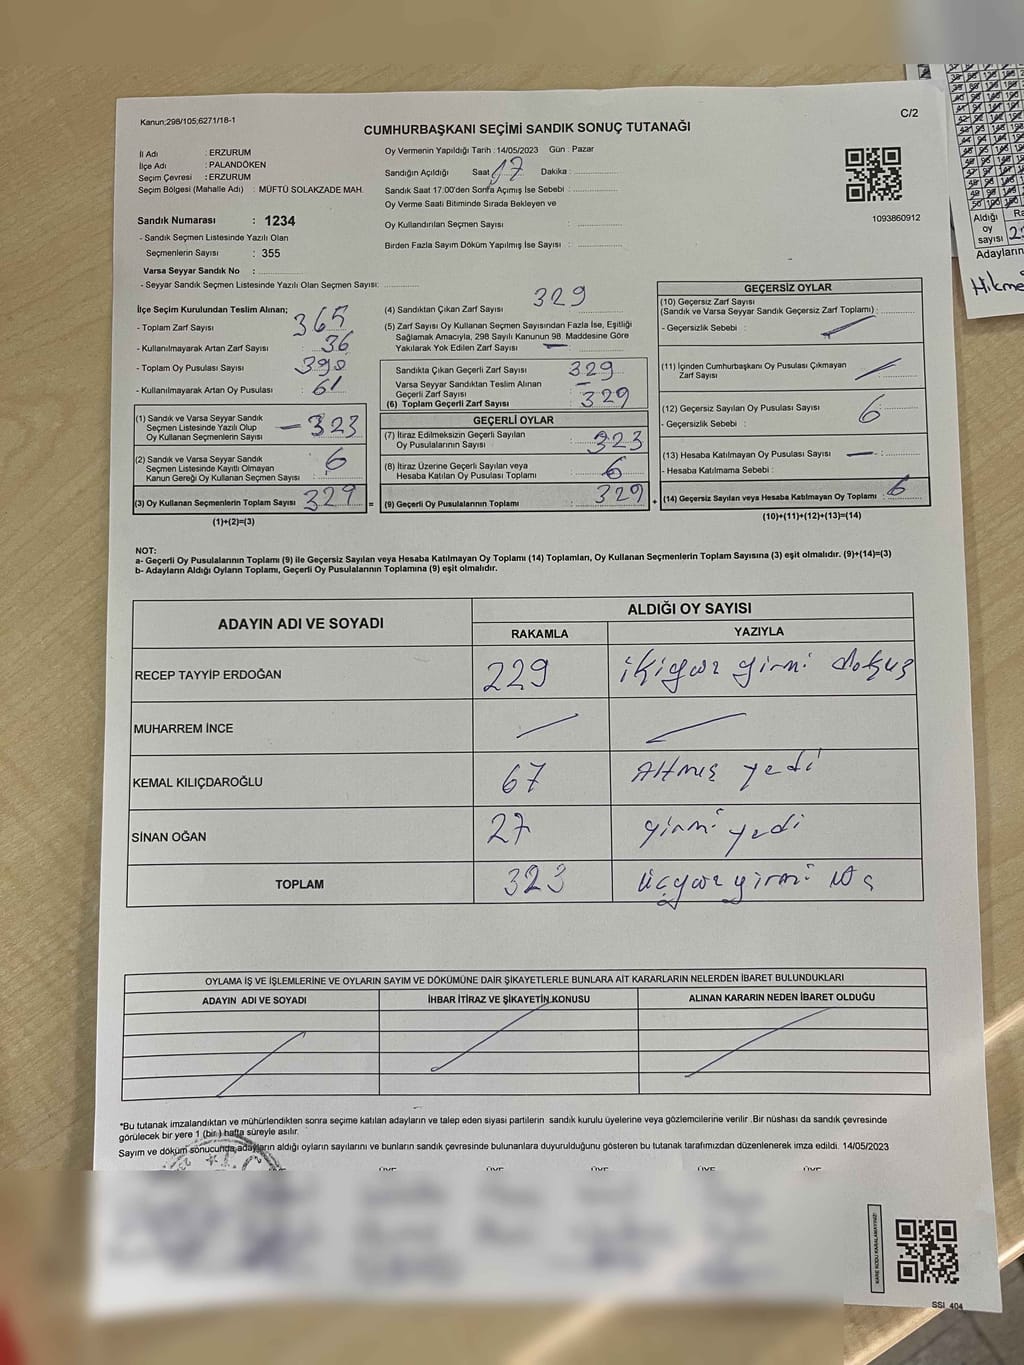 Kanun;298/105;6271/18-1
C/2
CUMHURBAŞKANI SEÇİMİ SANDIK SONUÇ TUTANAĞI
İl Adı : ERZURUM
İlçe Adı : PALANDÖKEN
Seçim Çevresi : ERZURUM
Seçim Bölgesi (Mahalle Adı) : MÜFTÜ SOLAKZADE MAH.
Sandık Numarası : 1234
- Sandık Seçmen Listesinde Yazılı Olan
Seçmenlerin Sayısı : 355
Varsa Seyyar Sandık No :
- Seyyar Sandık Seçmen Listesinde Yazılı Olan Seçmen Sayısı:
Oy Vermenin Yapıldığı Tarih : 14/05/2023 Gün : Pazar
Sandığın Açıldığı Saat : 17 Dakika :
Sandık Saat 17:00'den Sonra Açımış İse Sebebi :
Oy Verme Saati Bitiminde Sırada Bekleyen ve
Oy Kullandırılan Seçmen Sayısı :
Birden Fazla Sayım Döküm Yapılmış İse Sayısı :
1093860912
İlçe Seçim Kurulundan Teslim Alınan;
- Toplam Zarf Sayısı 365
- Kullanılmayarak Artan Zarf Sayısı 36
- Toplam Oy Pusulası Sayısı 390
- Kullanılmayarak Artan Oy Pusulası 61
(1) Sandık ve Varsa Seyyar Sandık
Seçmen Listesinde Yazılı Olup
Oy Kullanan Seçmenlerin Sayısı - 323
(2) Sandık ve Varsa Seyyar Sandık
Seçmen Listesinde Kayıtlı Olmayan
Kanun Gereği Oy Kullanan Seçmen Sayısı : 6
(3) Oy Kullanan Seçmenlerin Toplam Sayısı 329 =
(1)+(2)=(3)
(4) Sandıktan Çıkan Zarf Sayısı 329
(5) Zarf Sayısı Oy Kullanan Seçmen Sayısından Fazla İse, Eşitliği
Sağlamak Amacıyla, 298 Sayılı Kanunun 98. Maddesine Göre
Yakılarak Yok Edilen Zarf Sayısı - :
Sandıkta Çıkan Geçerli Zarf Sayısı 329
Varsa Seyyar Sandıktan Teslim Alınan
Geçerli Zarf Sayısı -
(6) Toplam Geçerli Zarf Sayısı : 329
GEÇERLİ OYLAR
(7) İtiraz Edilmeksizin Geçerli Sayılan
Oy Pusulalarının Sayısı : 323
(8) İtiraz Üzerine Geçerli Sayılan veya
Hesaba Katılan Oy Pusulası Toplamı : 6
(9) Geçerli Oy Pusulalarının Toplamı : 329 +
GEÇERSİZ OYLAR
(10) Geçersiz Zarf Sayısı
(Sandık ve Varsa Seyyar Sandık Geçersiz Zarf Toplamı) :
- Geçersizlik Sebebi :
(11) İçinden Cumhurbaşkanı Oy Pusulası Çıkmayan
Zarf Sayısı :
(12) Geçersiz Sayılan Oy Pusulası Sayısı : 6
- Geçersizlik Sebebi :
(13) Hesaba Katılmayan Oy Pusulası Sayısı - :
- Hesaba Katılmama Sebebi :
(14) Geçersiz Sayılan veya Hesaba Katılmayan Oy Toplamı : 6
(10)+(11)+(12)+(13)=(14)
NOT:
a- Geçerli Oy Pusulalarının Toplamı (9) ile Geçersiz Sayılan veya Hesaba Katılmayan Oy Toplamı (14) Toplamları, Oy Kullanan Seçmenlerin Toplam Sayısına (3) eşit olmalıdır. (9)+(14)=(3)
b- Adayların Aldığı Oyların Toplamı, Geçerli Oy Pusulalarının Toplamına (9) eşit olmalıdır.
ADAYIN ADI VE SOYADI
ALDIĞI OY SAYISI
RAKAMLA YAZIYLA
RECEP TAYYİP ERDOĞAN 229 ikiyüz yirmi dokuz
MUHARREM İNCE
KEMAL KILIÇDAROĞLU 67 Altmış yedi
SİNAN OĞAN 27 yirmi yedi
TOPLAM 323 üçyüz yirmi üç
OYLAMA İŞ VE İŞLEMLERİNE VE OYLARIN SAYIM VE DÖKÜMÜNE DAİR ŞİKAYETLERLE BUNLARA AİT KARARLARIN NELERDEN İBARET BULUNDUKLARI
ADAYIN ADI VE SOYADI İHBAR İTİRAZ VE ŞİKAYETİN KONUSU ALINAN KARARIN NEDEN İBARET OLDUĞU
*Bu tutanak imzalandıktan ve mühürlendikten sonra seçime katılan adayların ve talep eden siyasi partilerin sandık kurulu üyelerine veya gözlemcilerine verilir .Bir nüshası da sandık çevresinde
görülecek bir yere 1 (bir ) hafta süreyle asılır.
Sayım ve döküm sonucunda,adayların aldığı oyların sayılarını ve bunların sandık çevresinde bulunanlara duyurulduğunu gösteren bu tutanak tarafımızdan düzenlenerek imza edildi. 14/05/2023
ÜYE ÜYE ÜYE ÜYE ÜYE
KARE KODU KARALAMAYINIZ!
SSI_404
Aldığı
oy
sayısı
Adayların
Hikme